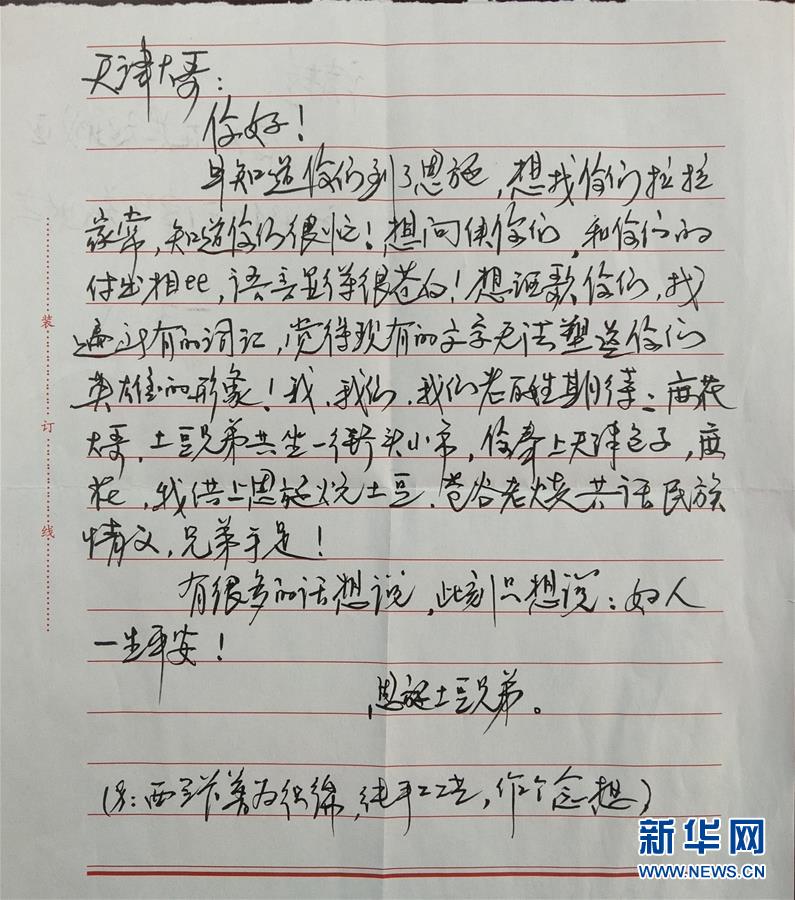 天津大哥：
你好！
早知道你们到了恩施，想找你们拉拉
家常，知道你们很忙！想问候你们，和你们的
付出相比，语言显得很苍白！想讴歌你们，找
遍所有的词汇，觉得现有的文字无法塑造你们
英雄的形象！我，我们，我们老百姓期待：麻花
大哥，土豆兄弟共坐一街头小市，你奉上天津包子，麻
花，我供上恩施炕土豆，苞谷老烧共话民族
情义，兄弟手足！
有很多的话想说，此刻只想说：好人
一生平安！
恩施土豆兄弟。
（另：西兰卡普为织锦，纯手工艺，作个念想）
装
订
线
新华网
WWW.NEWS.CN